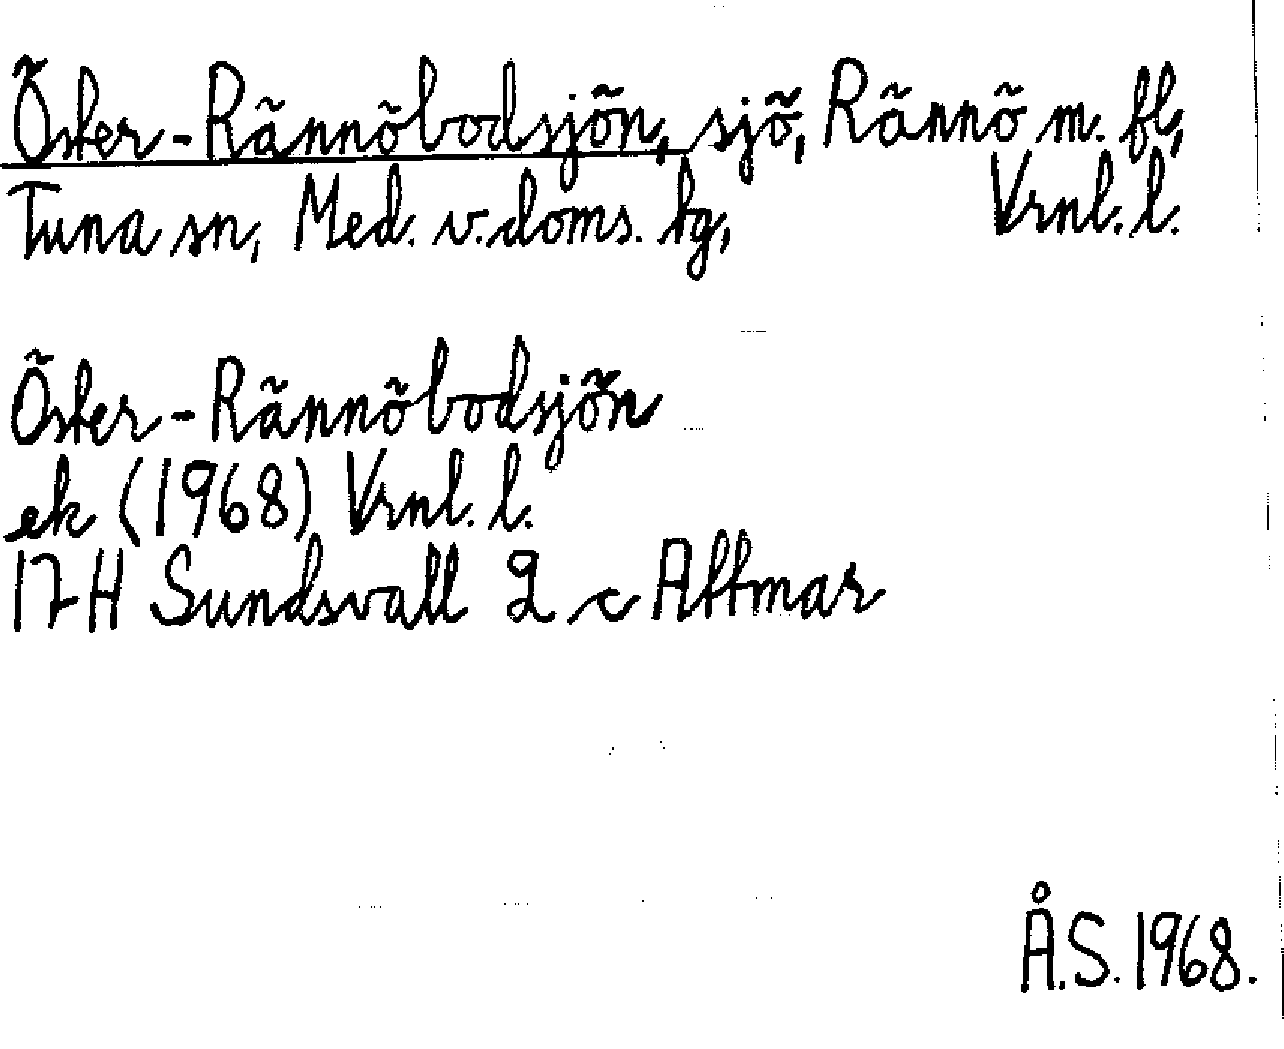 Öster-Rännöbodsjön, sjö, Rännö m. fl,
Tuna sn, Med. v. doms. hg, Vrnl. l.
Öster-Rännöbodsjön
ek (1968) Vrnl. l.
17 H Sundsvall 2 c Attmar
Å.S. 1968.